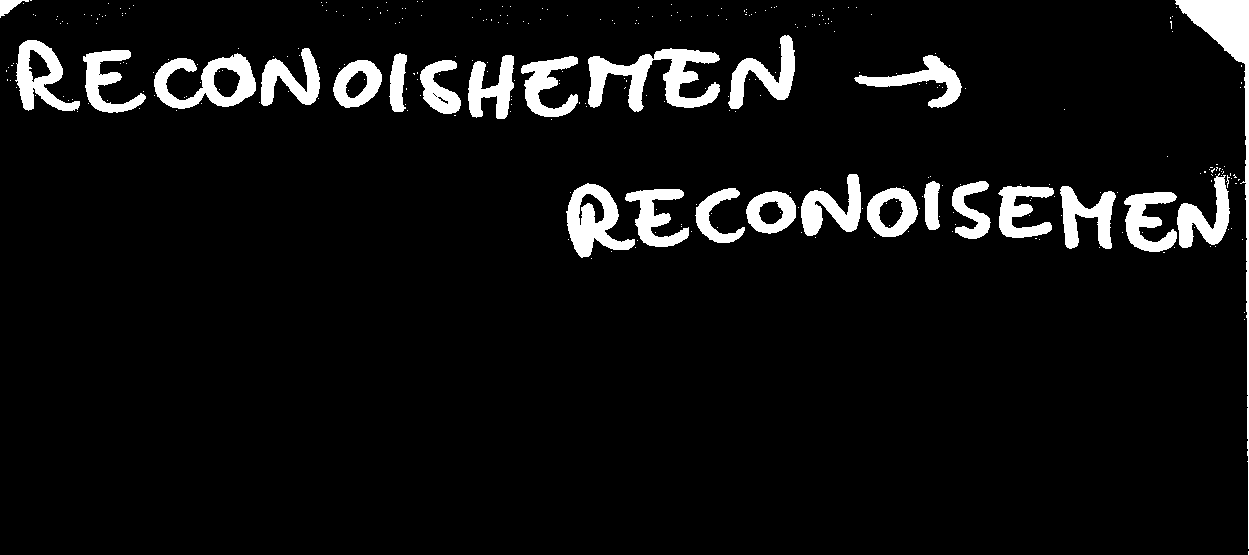 RECONOISHEMEN →
RECONOISEMEN